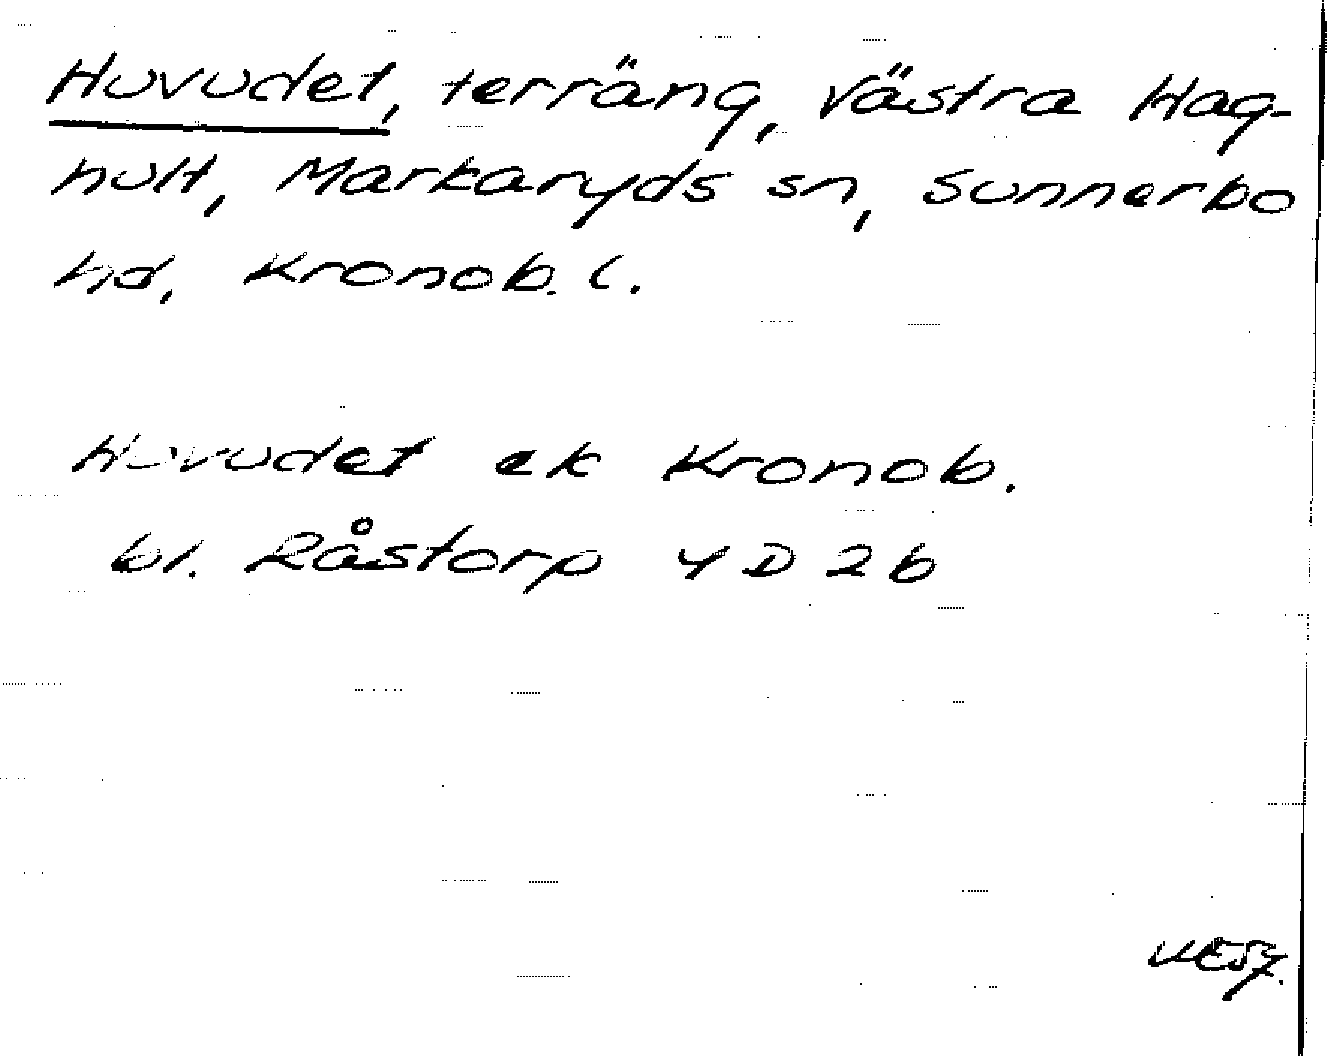 Huvudet, terräng, Västra Hag-
hult, Markaryds sn, Sunnerbo
hd, Kronob. l.
Huvudet ek Kronob.
bl. Råstorp 4D 2b